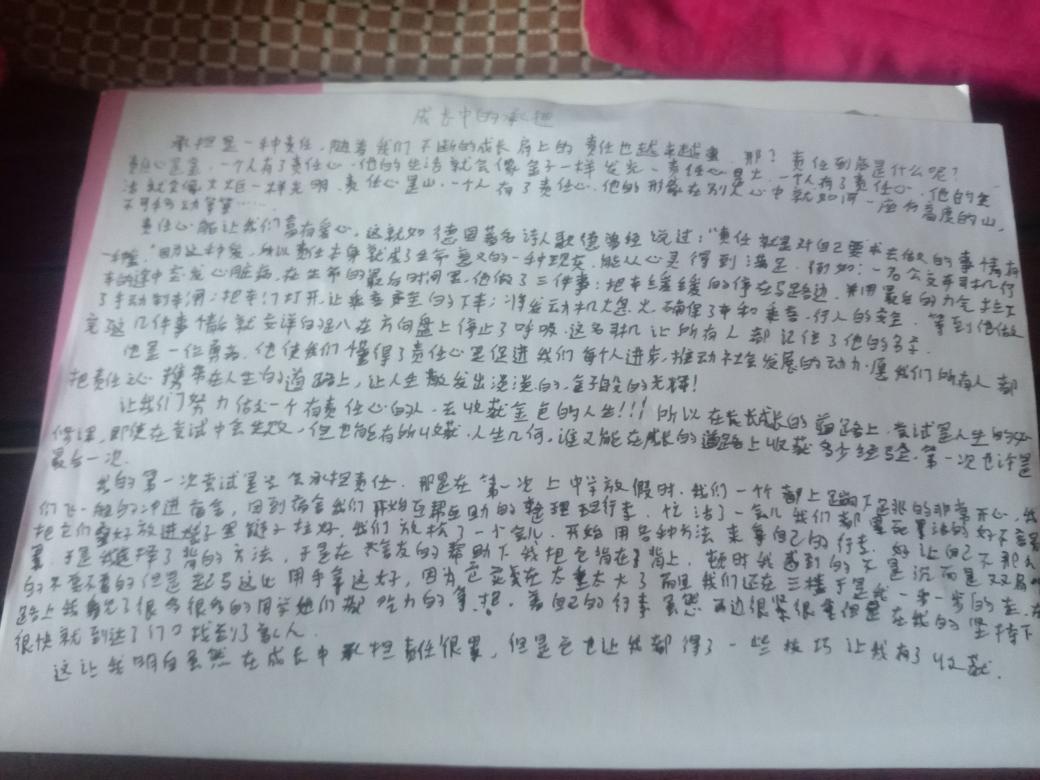 成长中的承担
承担是一种责任，随着我们不断的成长肩上的责任也越来越重，那？责任到底是什么呢？
责任心是金，一个人有了责任心，他的生活就会像金子一样发光，责任心是火，一个人有了责任心，他的生
活就会像火炬一样光明，责任心是山，一个人有了责任心，他的形象在别人心中就如同一座有高度的山，
不可动
责任心能让我们富有爱心，这就如德国著名诗人歌德曾经说过："责任就是对自己要求去做的事情有
一种爱，"因为这种爱，所以责任本身就成了生命意义的一种现实，能从心灵得到满足，例如：一名公交车司机行
车的途中突发心脏病，在生命的最后时间里，他做了三件事：把车缓缓的停在马路边，并用最后的力气拉上
了手动刹车闸；把车门打开，让乘客安全的下车；将发动机熄火，确保了车和乘客、行人的安全，等到他做
完这几件事情后就安详的趴在方向盘上停止了呼吸，这名司机让所有人都记住了他的名字
他是一位勇者，他使我们懂得了责任心是促进我们每个人进步，推动社会发展的动力，愿我们所有人都
把责任心携带在人生的道路上，让人生散发出的金子般的光辉！
让我们努力做一个有责任心的人，去收获金色的人生!!!所以在成长的道路上，尝试是人生的必
修课，即使在尝试中会失败，但也能有所收获，人生几何，谁又能在成长的道路上收获多少经验，第一次也许是
最后一次。
我的第一次尝试是学会承担责任，那是在第一次上中学放假时，我们一个个都上蹦下跳的非常开心，我
们飞一般的冲进宿舍，回到宿舍我们开始互帮互助的整理行李，忙活了一会儿我们都
把它们放进袋子里链子拉好，我们放松了一个会儿，开始用各种方法来拿自己的行李，好让自己不那么
累，于是我选择了背的方法，于是在舍友的帮助下我把它背在了背上，顿时我感到的不是沉而是
的不要不要的但是起码这比用手拿这好，因为它实在太重太大了而且我们还在三楼于是我一步一步的走，在
路上我看见了很多很多的同学她们都吃力的拿，着自己的行李虽然很累很重但是在我的坚持下
很快就到达了门口找到了家人。
这让我明白虽然在成长中承担责任很累，但是它也让我都得了一些技巧让我有了收获。